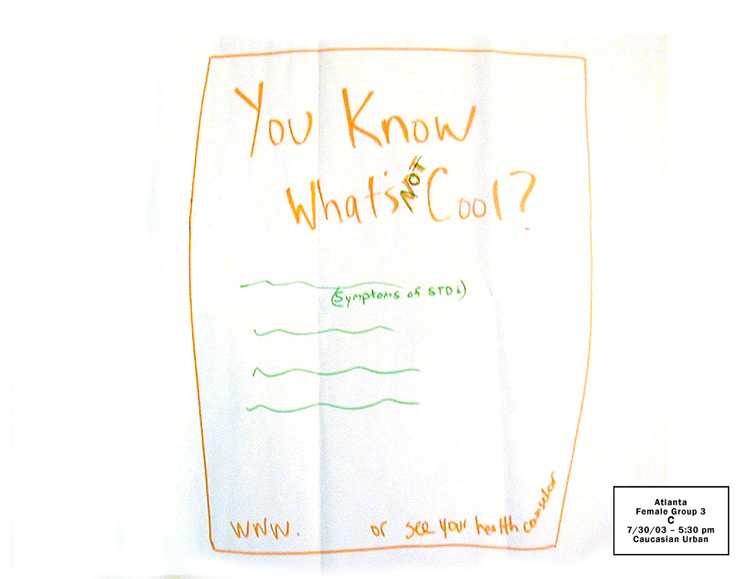 You Know
What's NOT Cool?
(Symptoms of STDs)
www. or see your health counselor
Atlanta
Female Group 3
C
7/30/03 – 5:30 pm
Caucasian Urban